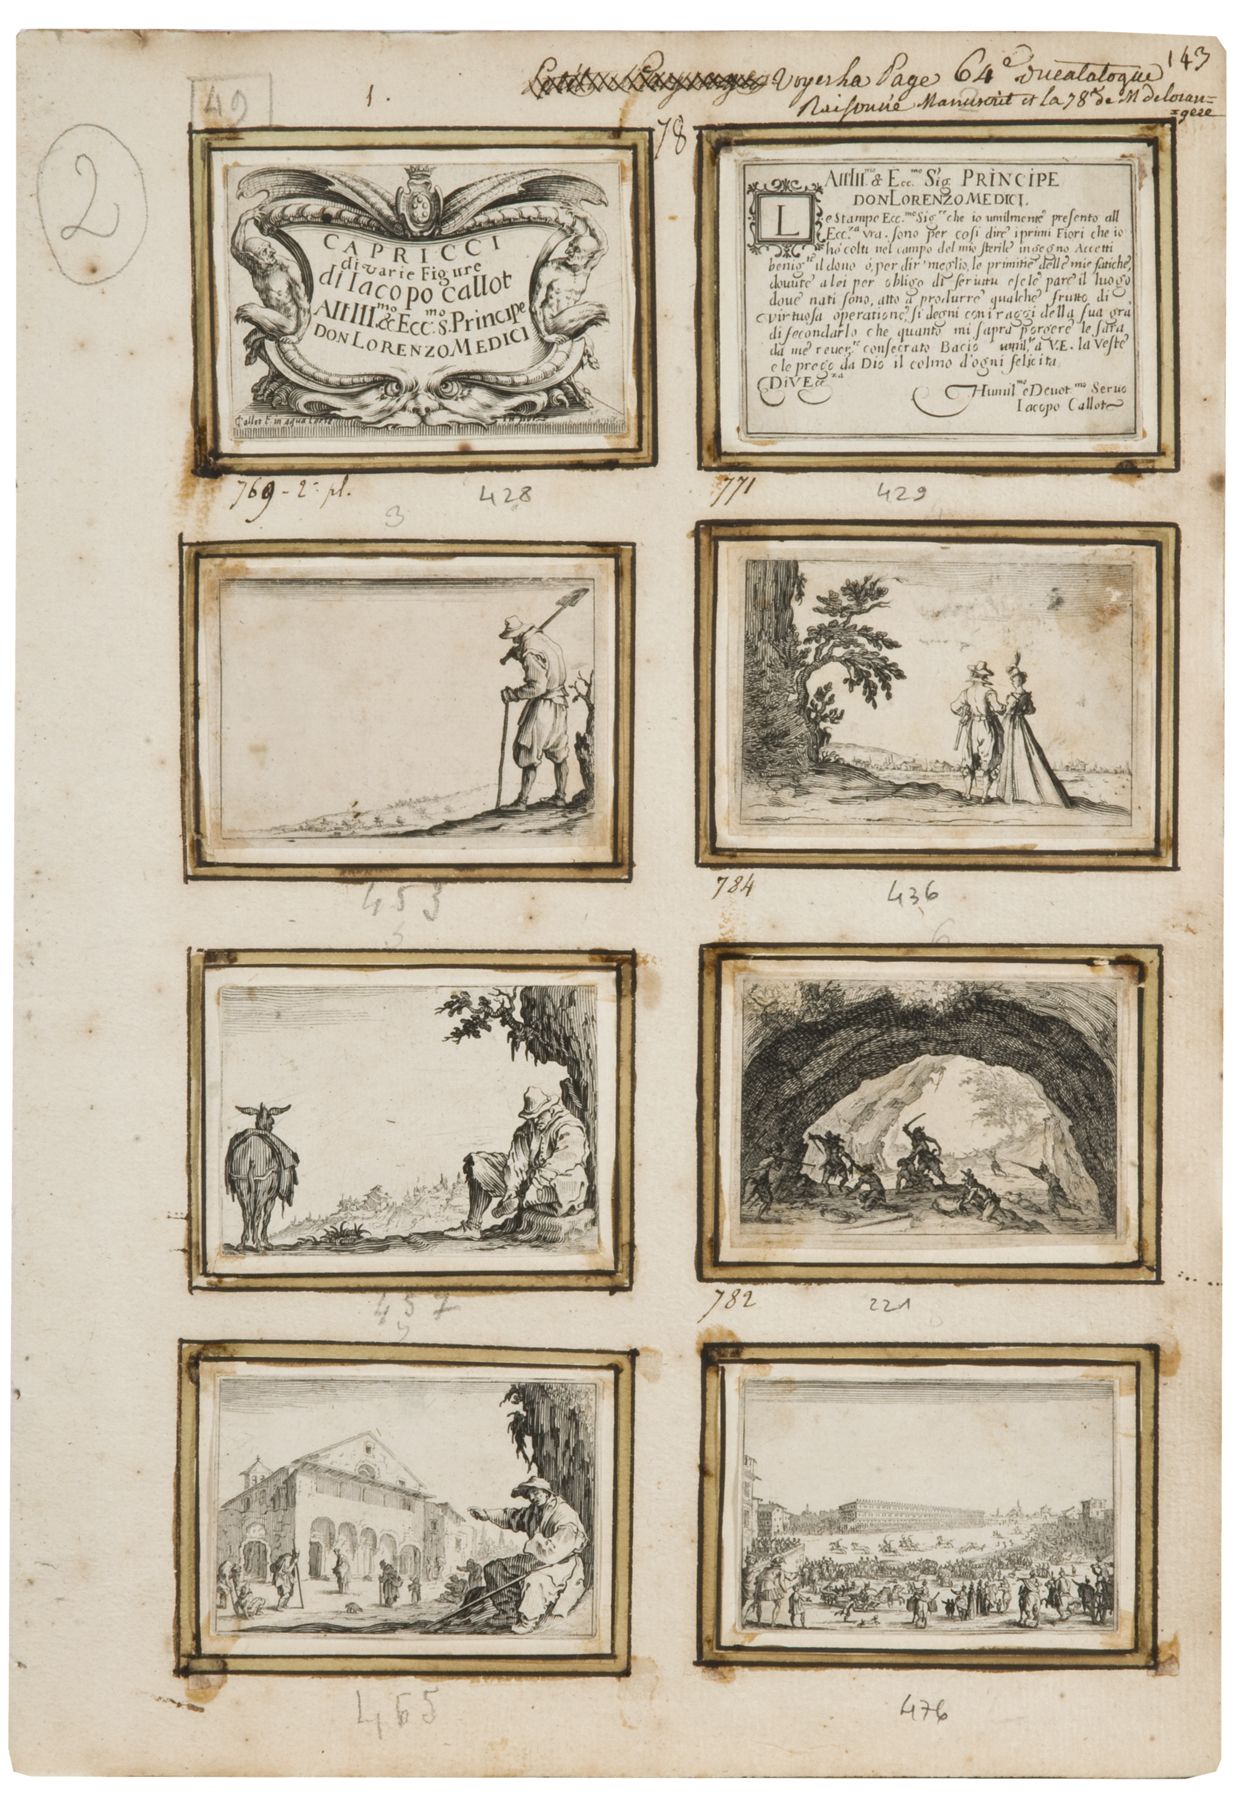 143
49
1.
Voyes la Page 64e du Catalogue
Raisonné Manuscrit et la 78e de M de loran=
=gere
2
78
CAPRICCI
di varie Figure
di Iacopo Callot
All Ill.mo & Ecc.mo S. Principe
DON LORENZO MEDICI
Callot F. in aqua forte
All Ill.mo & Ecc.mo Sig PRINCIPE
DON LORENZO MEDICI.
Le Stampe Ecc.mo Sig.re che io umilmente presento all
Ecc.za vra. sono per cosi dire i primi Fiori che io
hò colti nel campo del mio sterile ingegno. Accetti
benig.te il dono ó, per dir meglio, le primitie delle mie fatiche,
douute a lei per obligo di seruitu e se le pare il luogo
doue nati sono, atto à produrre qualche frutto di
virtuosa operatione, si degni con i raggi della sua gra
di secondarlo che quanto mi saprà porgere le sara
da me reuer.te consecrato Bacio umil.te a V.E. la veste
e le prego da Dio il colmo d'ogni felicita
Di V. Ecc.za
Humil.mo e Deuot.mo Seruo
Iacopo Callot
769 - 2e pl.
428
771
429
3
453
784
436
5
6
457
782
221
7
465
476